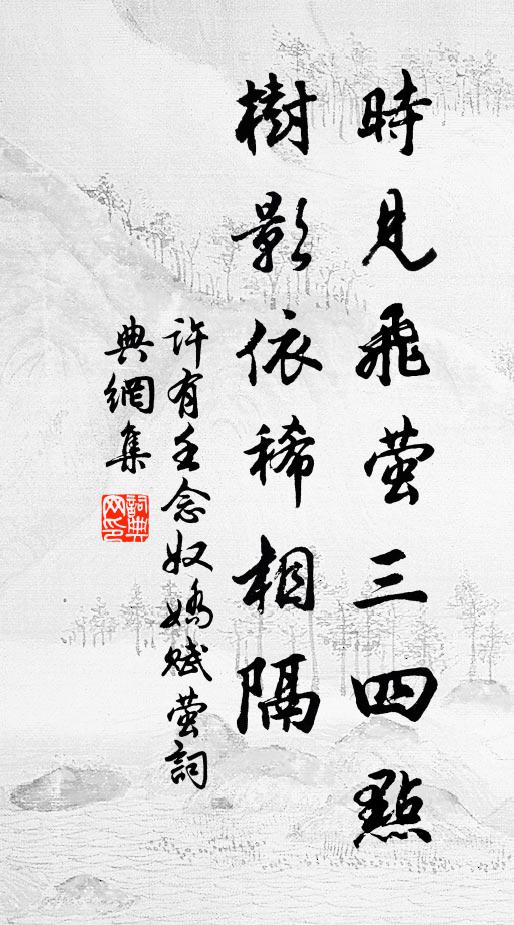 時見飛螢三四點
樹影依稀相隔
許有壬念奴嬌賦螢詞
典網集
詞典網印